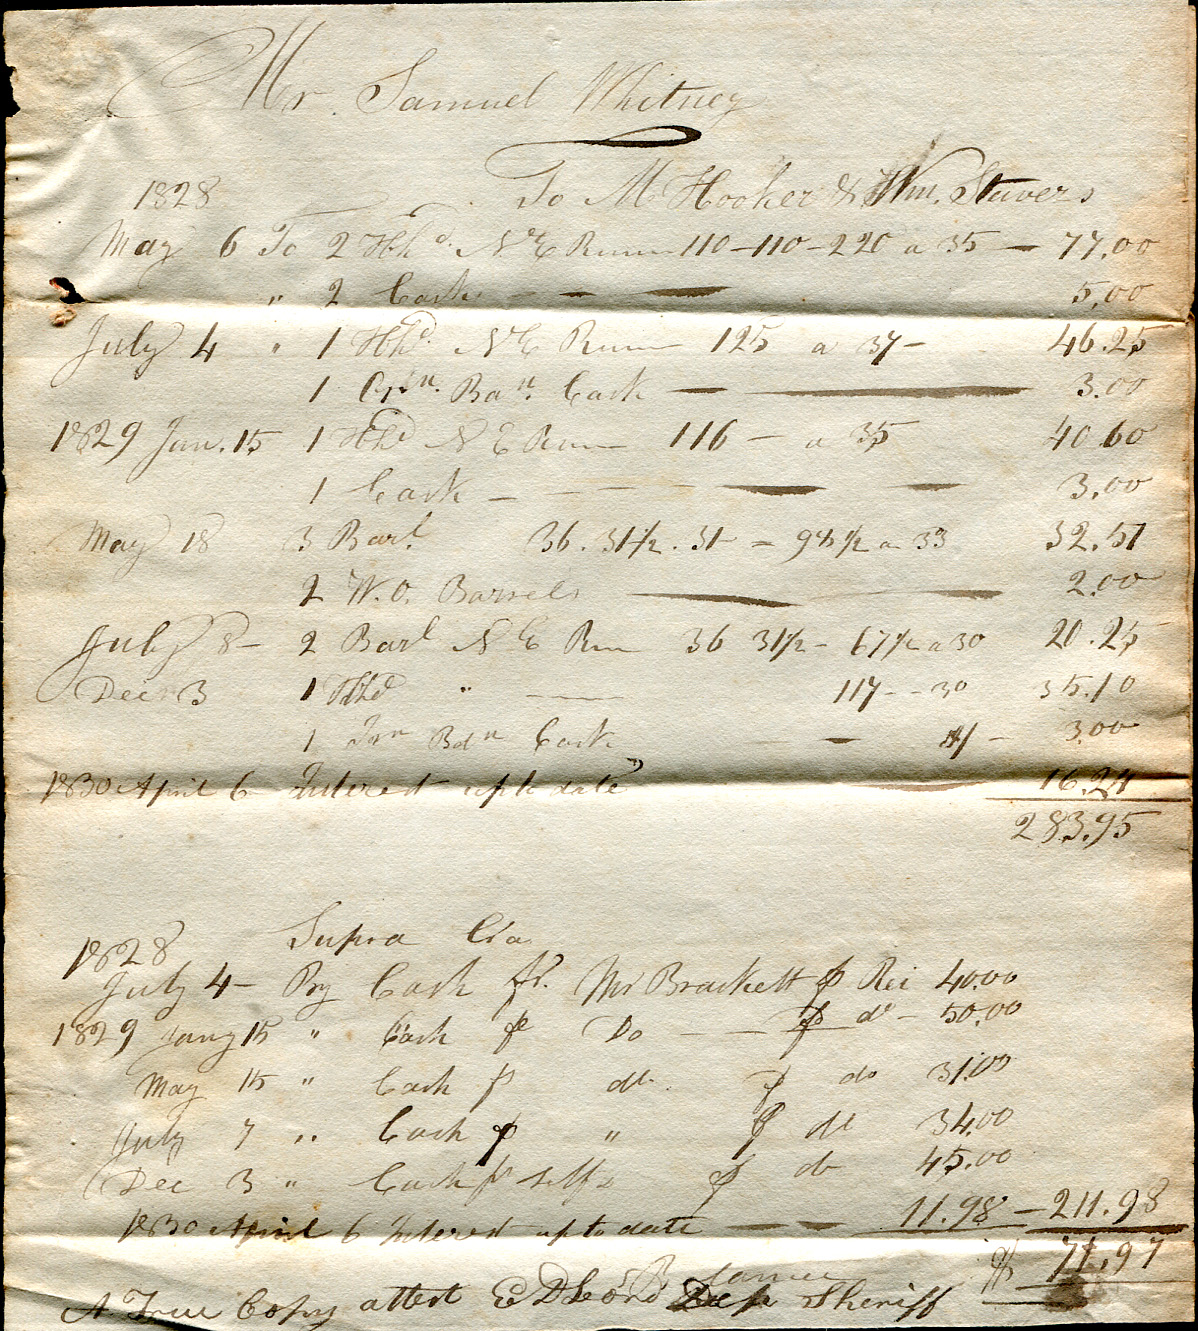 Mr. Samuel Whitney
To M Hooker & Wm. Stavers
1828
May 6 To 2 Hhd. N E Rum 110-110-220 a 35 — 77.00
" 2 Casks — — — 5.00
July 4 " 1 Hhd. N E Rum 125 a 37 - 46.25
1 Irn. Ban. Cask — — 3.00
1829 Jan. 15 1 Hhd N E Rum 116 — a 35 40.60
1 Cask — — — 3.00
May 18 3 Barl. 36. 31 1/2. 31 = 98 1/2 a 33 32.51
2 W. O. Barrels — — 2.00
July 8 - 2 Barl N E Rum 36 31 1/2 - 67 1/2 a 30 20.25
Dec 3 1 Hhd " — 117 - - 30 35.10
1 Irn Bdn Cask — 3.00
1830 April 6 Interest up to date 16.24
283.95
1828 Supra Cra
July 4 - By Cash fr. Mr Brackett p Rei 40.00
1829 Jany 15 " Cash p Do — p do - 50.00
May 15 " Cash p do. p do 31.00
July 7 " Cash p " p do 34.00
Dec 3 " Cash p self p do 45.00
1830 April 6 Interest up to date — — 11.98 — 211.98
$ 71.97
A True Copy attest E D Leond Dep Sheriff